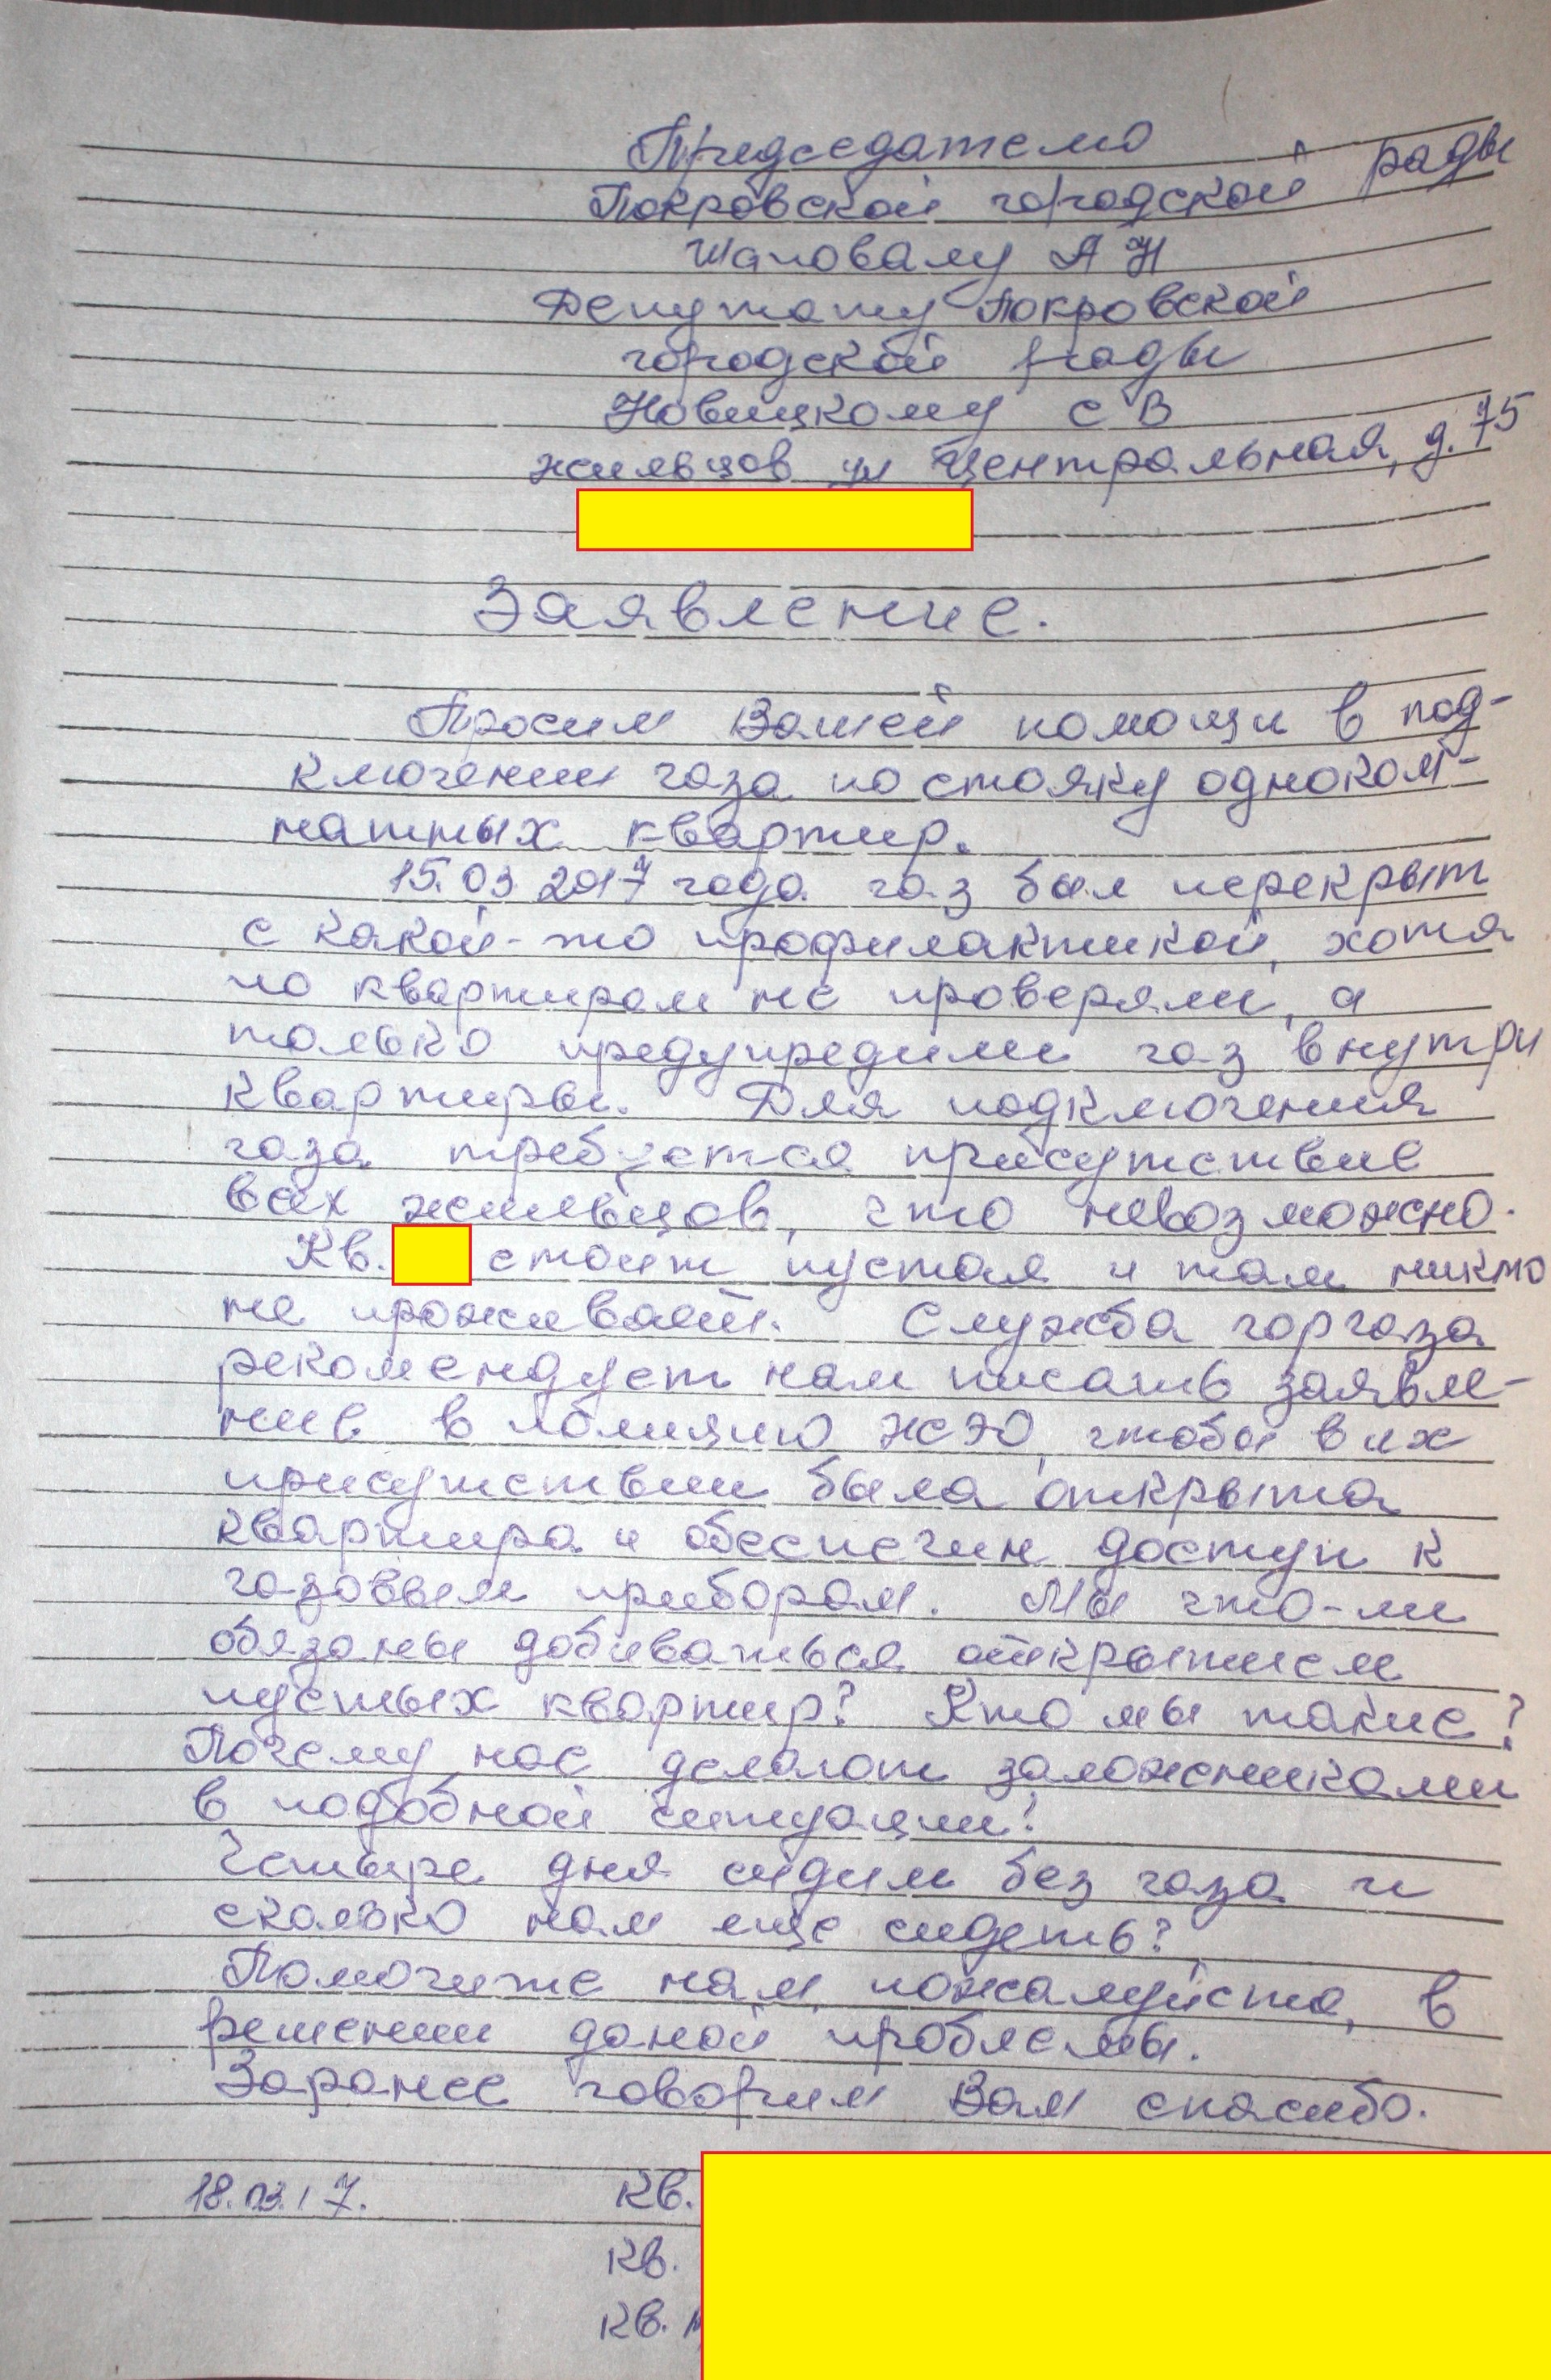 Председателю
Покровской городской рады
Шаповалу А Н
Депутату Покровской
городской рады
Новицкому С В
жильцов ул Центральная, д. 75
Заявление.
Просим Вашей помощи в под-
ключении газа по стояку одноком-
натных квартир.
15.03 2017 года газ был перекрыт
с какой-то профилактикой, хотя
по квартирам не проверяли, а
только предупредили газ внутри
квартиры. Для подключения
газа требуется присутствие
всех жильцов, что невозможно.
Кв. стоит пустая и там никто
не проживает. Служба горгаза
рекомендует нам писать заявле-
ние в полицию ЖЭО, чтобы в их
присутствии была открыта
квартира и обеспечен доступ к
газовым приборам. Мы что-ли
обязаны добиваться открытием
пустых квартир? Кто мы такие?
Почему нас делают заложниками
в подобной ситуации?
Четыре дня сидим без газа и
сколько нам еще сидеть?
Помогите нам, пожалуйста, в
решении даной проблемы.
Заранее говорим Вам спасибо.
18.03.17. Кв.
Кв.
Кв.